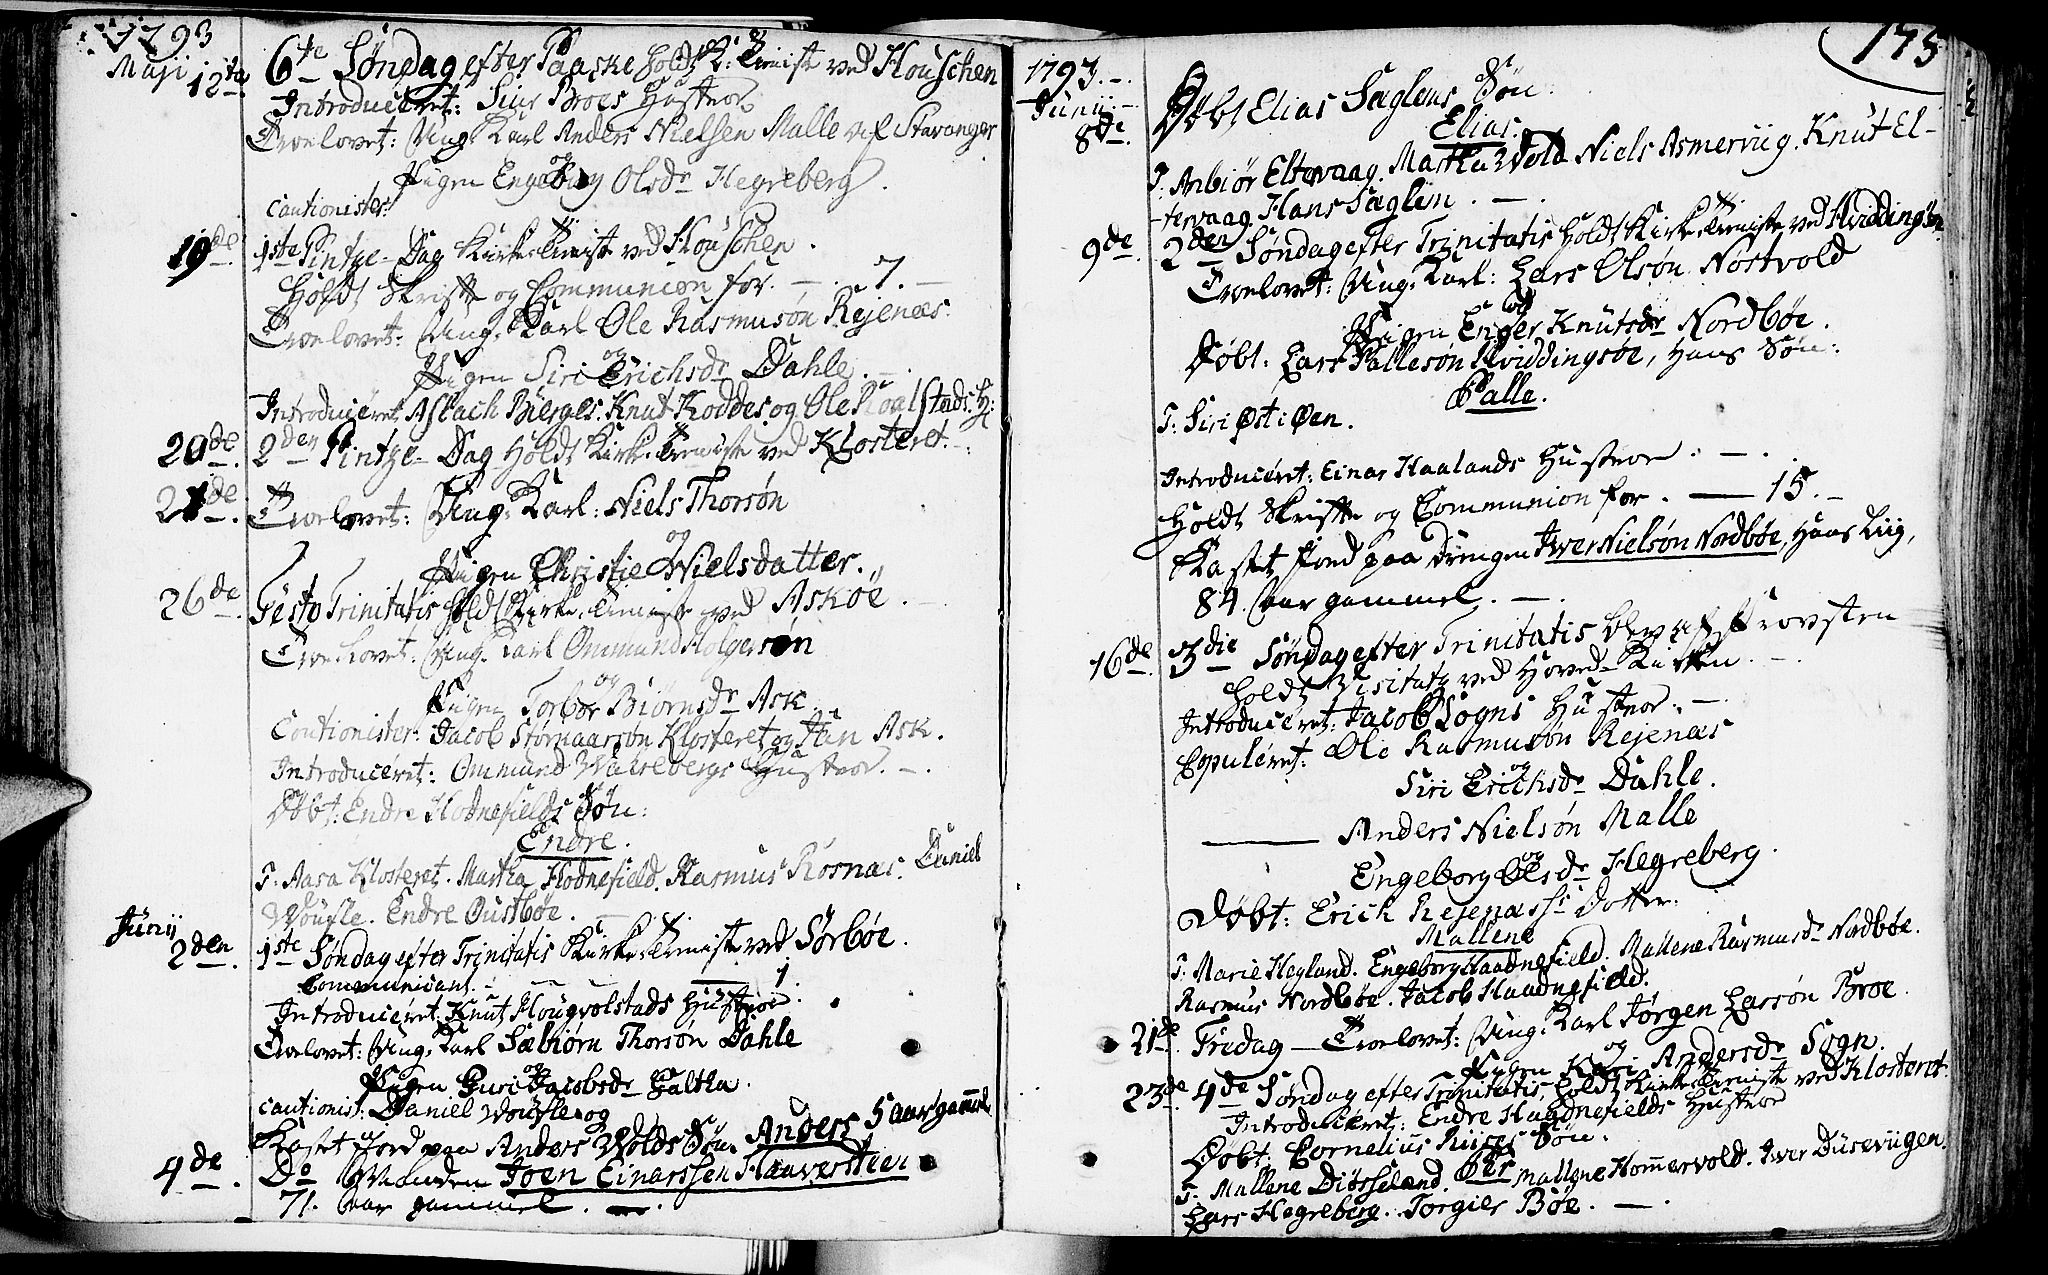 1793
Maji 12te 6te Søndag efter Paaske holdt K: Tieniste ved Houschen
Introduceret: Siur Broes Hustroe.
Troelovet: Ung-Karl Anders Nielsen Malle af Stavanger
og
Pigen Engeborg Olsdr Hegreberg.
Cautionister:
19de 1ste Pintze-Dag Kirke-Tieniste ved Houschen.
Holdt Skrifte og Communion for. — 7. —
Troelovet: Ung-Karl Ole Rasmusøn Rejenæs.
og
Pigen Siri Erichsdr Dahle. —
Introduceret Aslach Bierges. Knut Koddes. og Ole Roalstads H:
20de 2den Pintze-Dag Holdt Kirke-Tieniste ved Klosteret. —
21de Troelovet: Ung-Karl: Niels Thorsøn
og
Pigen Christie Nielsdatter.
26de Festo Trinitatis holdt Kirke-Tieniste ved Askøe. —
Troelovet: Ung-Karl Ommund Holgersøn
og
Pigen Torbor Biørnsdr Ask.
Cautionister: Jacob Klosteret og Jan Ask.
Introduceret: Ommund Hustroe. —
Døbt: Endre Hodnefields Søn:
Endre.
T. Aasa Klosteret. Martha Hodnefield. Rasmus Rosnas. Daniel
Woufle. Endre Oustbøe. —
Junij
2den 1ste Søndag efter Trinitatis Kirke-Tieniste ved Sørbøe.
Communicant. — — — 1.
Introduceret: Knut Hougvolstads Hustroe.
Troelovet: Ung-Karl Sæbiørn Thorsøn Dahle
og
Pigen Guri Jacobsdr Galtha.
Cautionist: Daniel Woufle og
Kastet Jord paa Anders Wolds Søn. Anders 5 aar gammel
4de Do Manden Joen Einarssen Haaversteen
71. aar gammel. —
175
1793. —
Junij. —
8de Døbt Elias Saglens Søn:
Elias.
T. Anbiør Eltervaag. Martha Wold Niels Asmerviig. Knut El-
-tervaag Hans Saglen. —
9de 2den Søndag efter Trinitatis Holdt Kirke-Tieniste ved Hviddingsøe
Troelovet: Ung-Karl: Lars Olsøn Nøstvold
og
Pigen Enger Knutsdr Nordbøe.
Døbt. Lars Pallesøn Hviddingsøe, Hans Søn:
Palle.
T: Siri Østi Øen.
Introduceret: Einar Haalands Hustroe. —
Holdt Skrifte og Communion for. — 15. —
Kastet Jord paa Drengen Iver Nielsøn Nordbøe, Hans Liig,
84. aar gammel. —
16de 3die Søndag efter Trinitatis blev af Provsten
holdt Visitatz ved Hoved-Kirken. —
Introduceret: Jacob Sogns Hustroe. —
Copuleret: Ole Rasmusøn Rejenæs
og
Siri Erichsdr Dahle.
— Anders Nielsøn Malle
og
Engeborg Olsdr Hegreberg.
Døbt: Erich Rejenæss's Dotter:
Mallene
T: Marie Hegland. Engeborg Haadnefield. Mallene Rasmusdr Nordbøe.
Rasmus Nordbøe. Jacob Haadnefield.
21de Fredag — Troelovet: Ung-Karl Jørgen Larsøn Broe.
og
Pigen Kari Andersdr Sogn.
23de 4de Søndag efter Trinitatis, holdt Kirke-Tieniste ved Klosteret
Introduceret: Endre Haadnefields Hustroe
Døbt: Cornelius Søn:
Per
T. Mallene Diøsseland. Mallene Hommervold. Iver Dusevigen.
Lars Hegreberg. Torgier Bøe. —